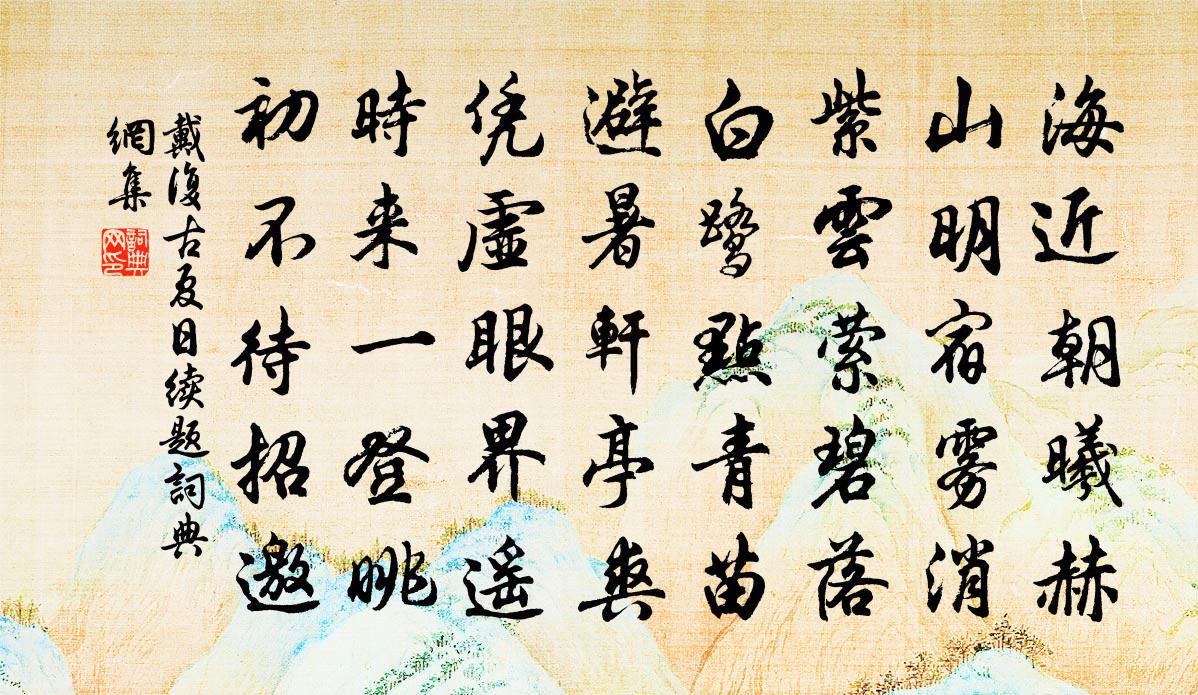 海近朝曦赫
山明宿雾消
紫雲萦碧落
白鹭點青苗
避暑軒亭爽
凭虚眼界遥
時来一登眺
初不待招邀
戴復古夏日续题詞典
網集
詞典
网印